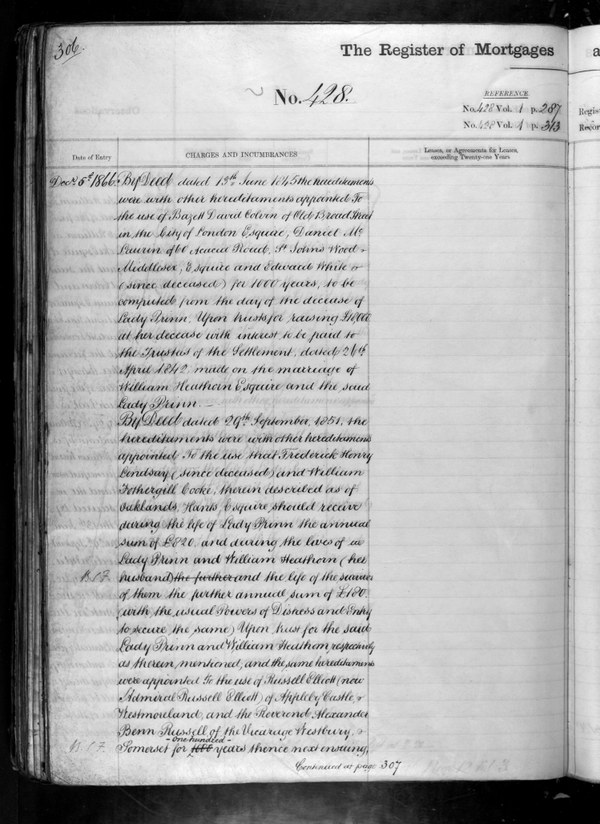 306.
The Register of Mortgages
No. 428.
REFERENCE.
No. 428 Vol. 1 p. 287
No. 428 Vol. 1 p. 313
Date of Entry
CHARGES AND INCUMBRANCES
Leases, or Agreements for Leases,
exceeding Twenty-one Years
Decr. 5th 1866. By Deed dated 13th June 1845 the hereditaments
were with other hereditaments appointed To
the use of Bazett David Colvin of Old Broad Street
in the City of London Esquire, Daniel Mc
Laurin of 60 Acacia Road, St Johns Wood
Middlesex, Esquire and Edward White
(since deceased) for 1000 years, to be
computed from the day of the decease of
Lady Prinn. Upon trusts for raising
at her decease with interest to be paid to
the Trustees of the Settlement, dated 26th
April 1842 made on the marriage of
William Heathorn Esquire and the said
Lady Prinn. —
By Deed dated 29th September, 1851, the
hereditaments were with other hereditaments
appointed To the use that Frederick Henry
Lindsay (since deceased) and William
Fothergill Cooke, therein described as of
Oaklands, Hants, Esquire, should receive
during the life of Lady Prinn the annual
sum of £820, and during the lives of
Lady Prinn and William Heathorn (her
husband) the further and the life of the survivor
of them the further annual sum of £180.
(with the usual Powers of Distress and Entry
to secure the same) Upon trust for the said
Lady Prinn and William Heathorn respectively
as therein mentioned, and the same hereditaments
were appointed To the use of Russell Elliott (now
Admiral Russell Elliott) of Appleby Castle,
Westmorland, and the Reverend Alexander
Benn Russell of the Vicarage Westbury,
- one hundred -
Somerset for 1000 years thence next ensuing,
Continued at page 307